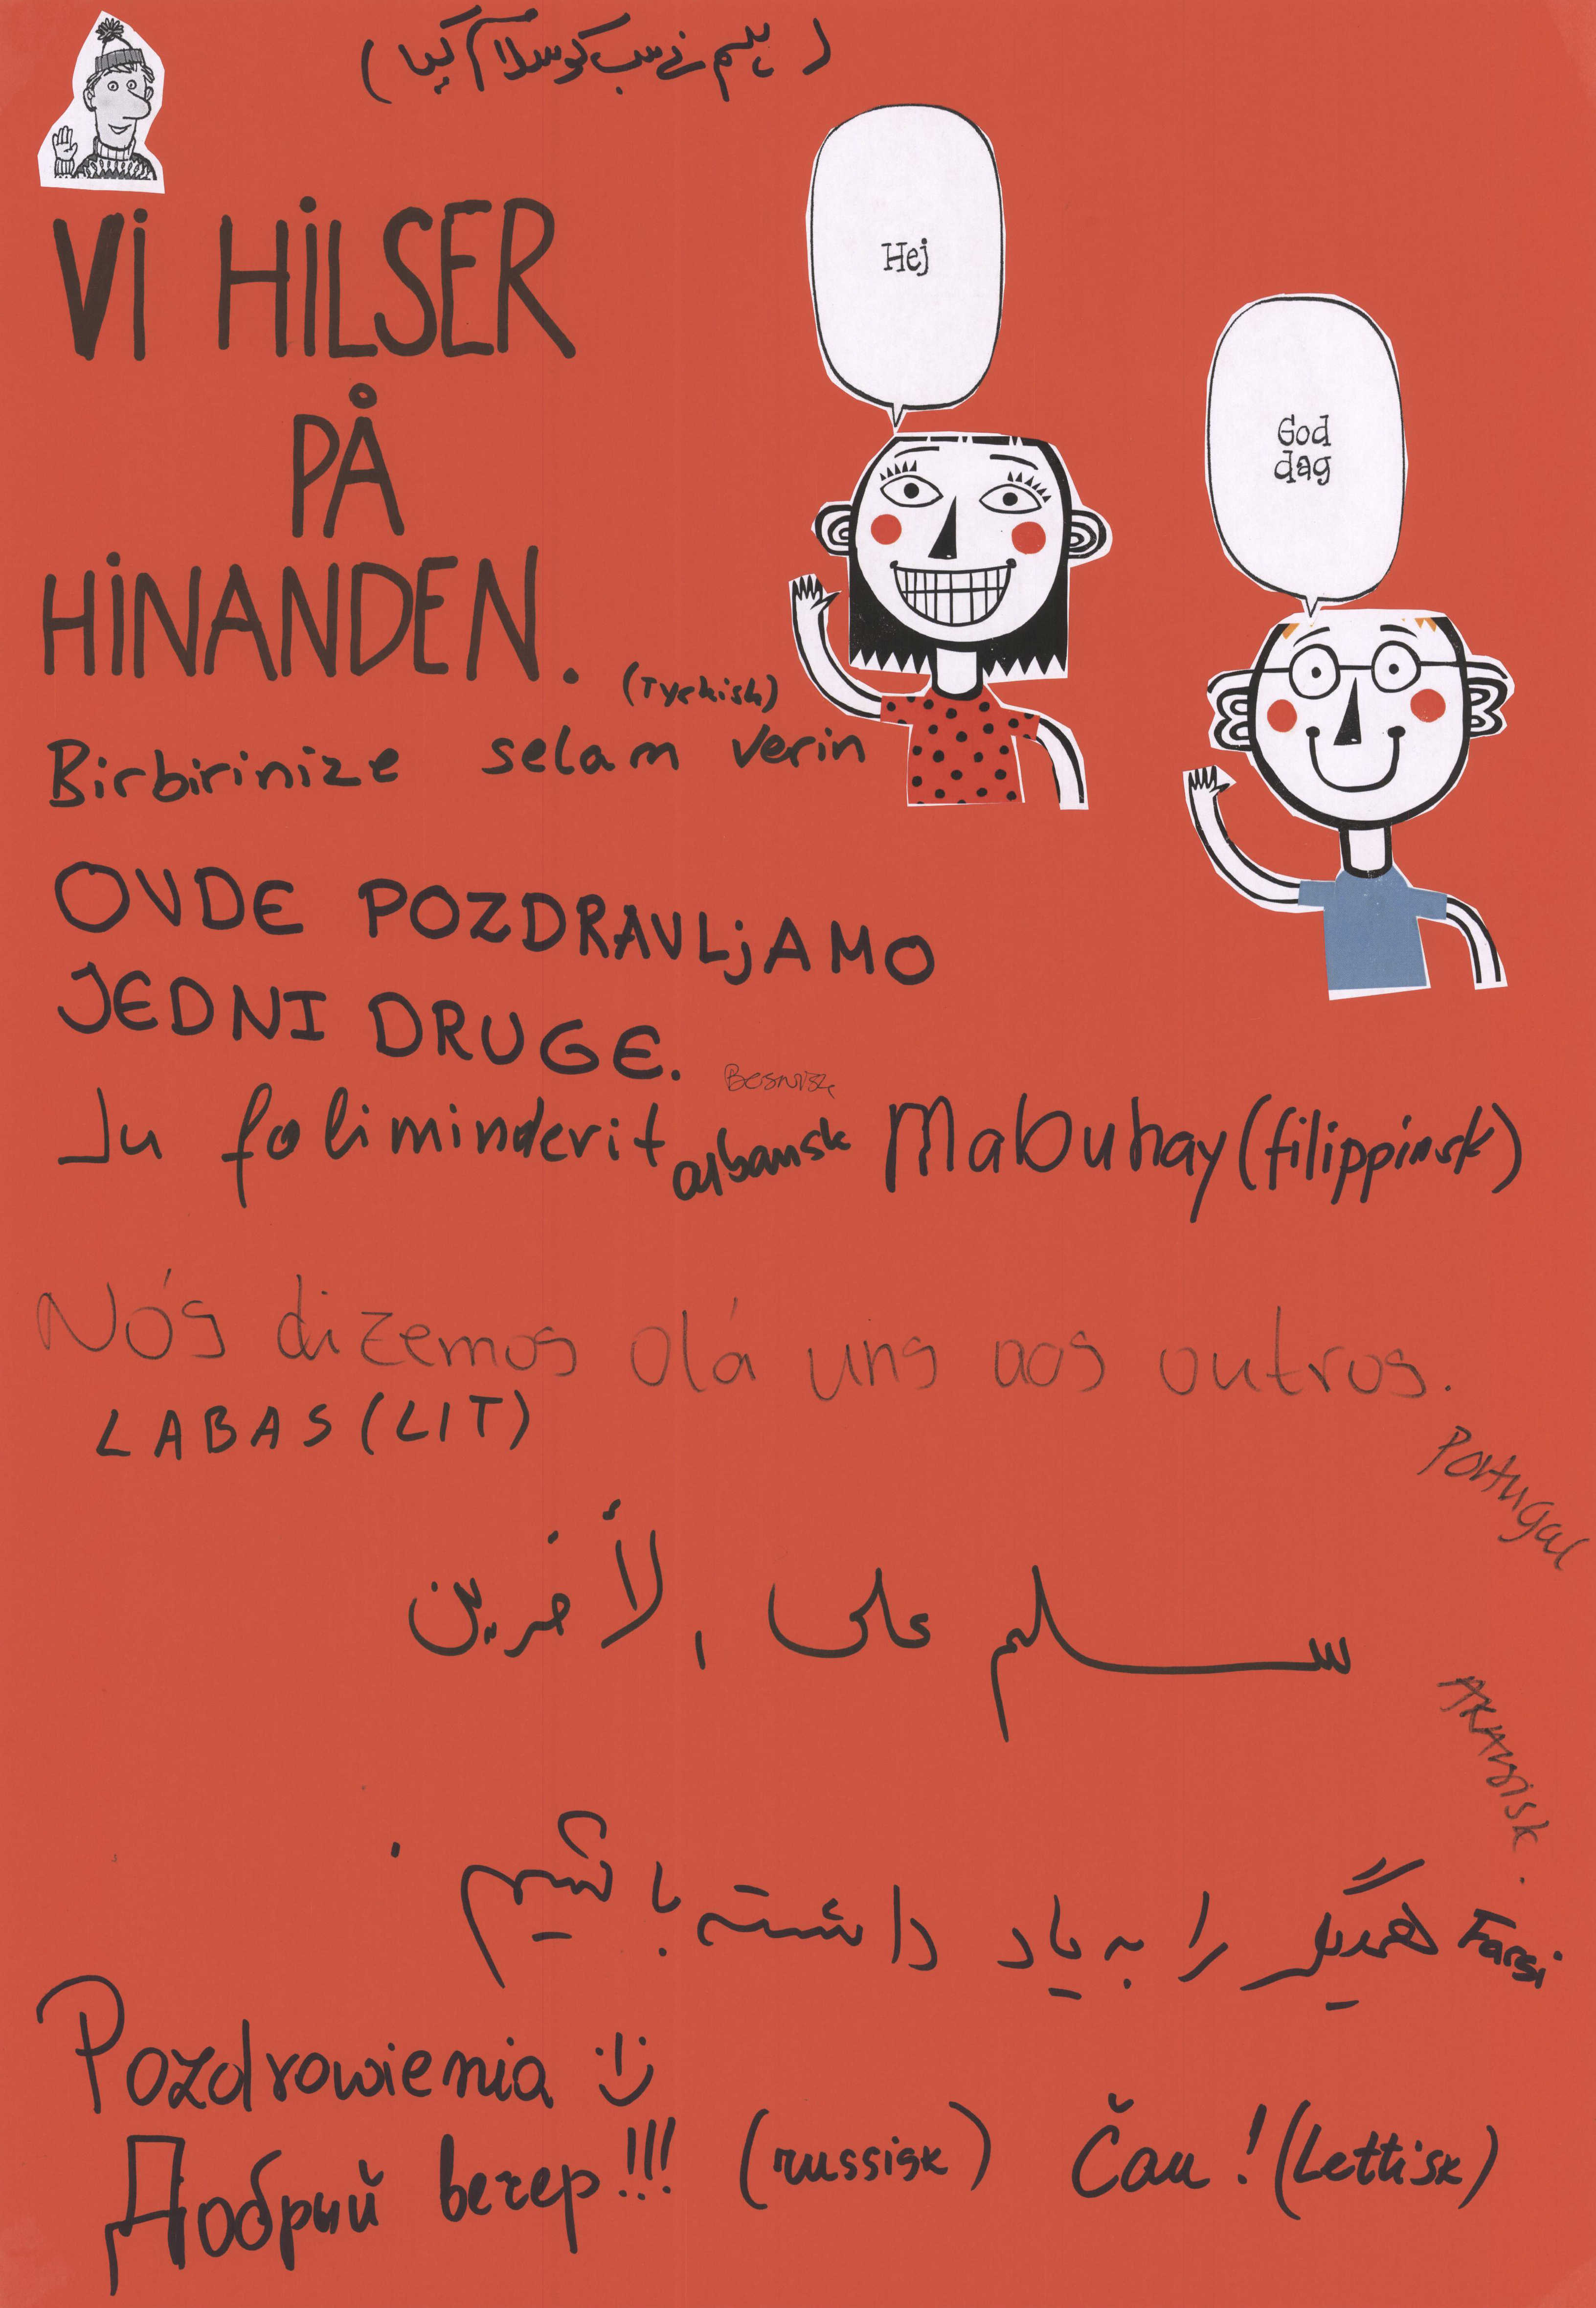 سب کو سلام کیا
Hej
God
dag
Vi HiLSER
PÅ
HiNANDEN.
(Tyrkish)
Birbirinize selam verin
OVDE POZDRAVLjAMO
JEDNI DRUGE.
Bosnisk
Ju foliminderit albansk Mabuhay (filippinsk)
Nós dizemos olá uns aos outros.
Portugal
LABAS (LIT)
سلم على الأخرين
ARABISK.
را به یاد داشته باشیم. Farsi
Pozdrowienia
Добрый вечер!!! (russisk) Čau! (Lettisk)